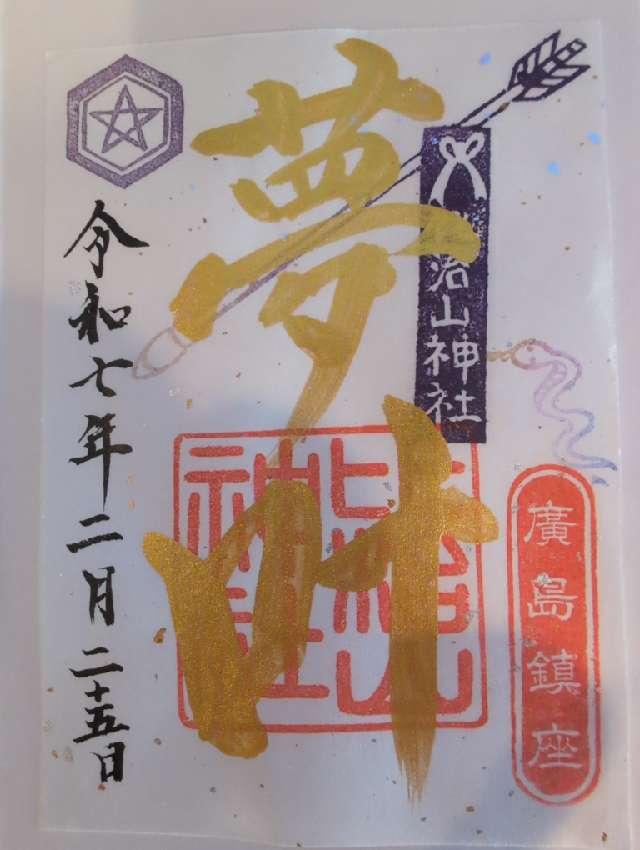 廣島鎮座
治山神社
夢叶
比治山神社
令和七年二月二十五日